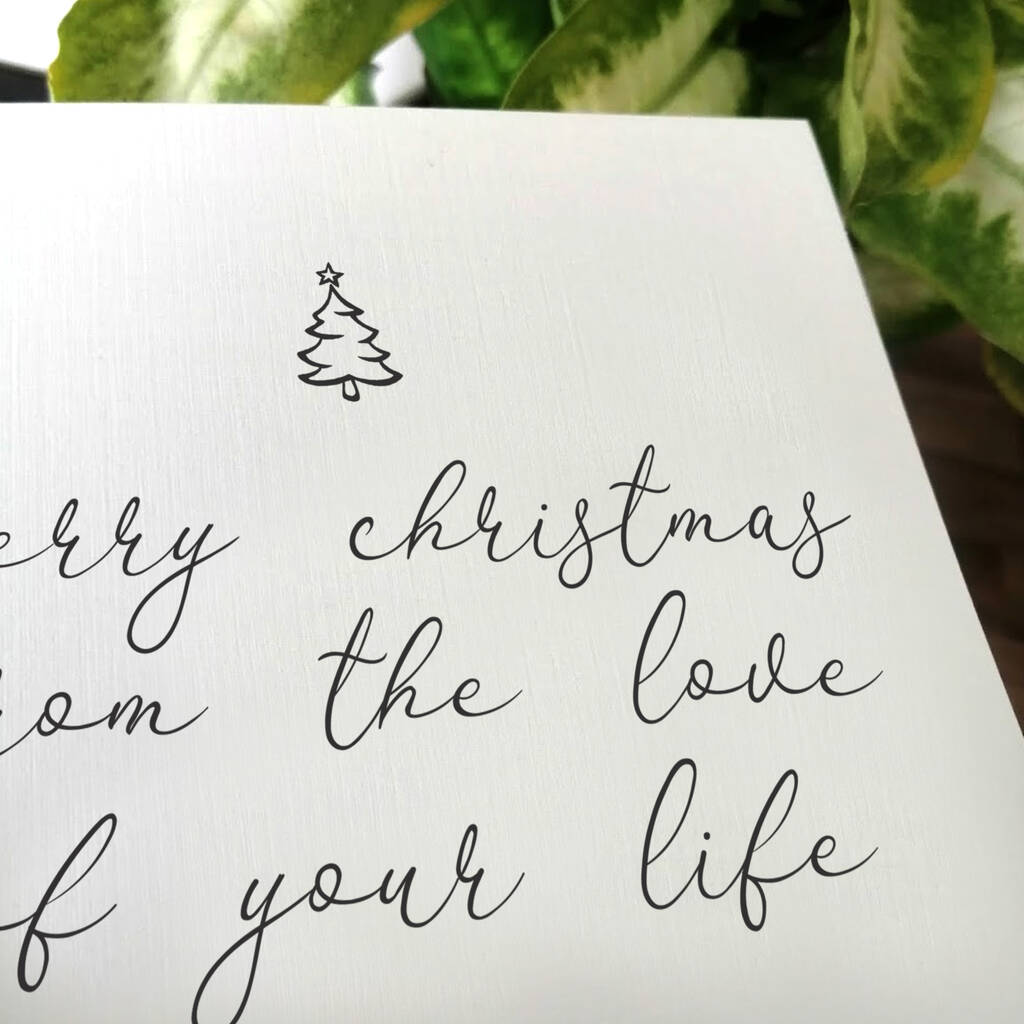 erry christmas
rom the love
of your life